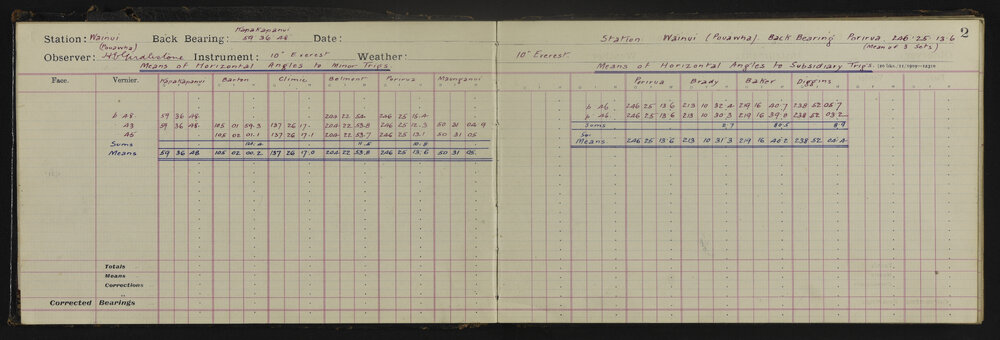 Kapakapanui
Station: Wainui Back Bearing: 59 36 48 Date:
(Pouawha)
Observer: Instrument: 10" Everest Weather:
Means of Horizontal Angles to Minor Trigs
Face. Vernier. Kapakapanui Barton Climie Belmont Porirua Maunganui
p 48 59 36 48 204 22 54 246 25 15.4
A3 59 36 48 105 01 59.3 137 26 17. 204 22 53.8 246 25 12.3 50 31 04.9
A5 105 02 01.1 137 26 17.1 204 22 53.7 246 25 13.1 50 31 05
Sums 11.5 10.8
Means 59 36 48 105 02 00.2 137 26 17.0 204 22 53.8 246 25 13.6 50 31 05.
Totals
Means
Corrections
"
Corrected Bearings
2
Station Wainui (Pouawha). Back Bearing Porirua 246° 25' 13.6
(Mean of 3 Sets)
10" Everest.
Means of Horizontal Angles to Subsidiary Trigs.
Porirua Brady Baker Diggins
p 46 246 25 13.6 213 10 32.4 219 16 40.7 238 52 05.7
p 46 246 25 13.6 213 10 30.3 219 16 39.8 238 52 03.2
Sums 2.7 80.5 8.9
Means 246 25 13.6 213 10 31.3 219 16 40.2 238 52 04.4